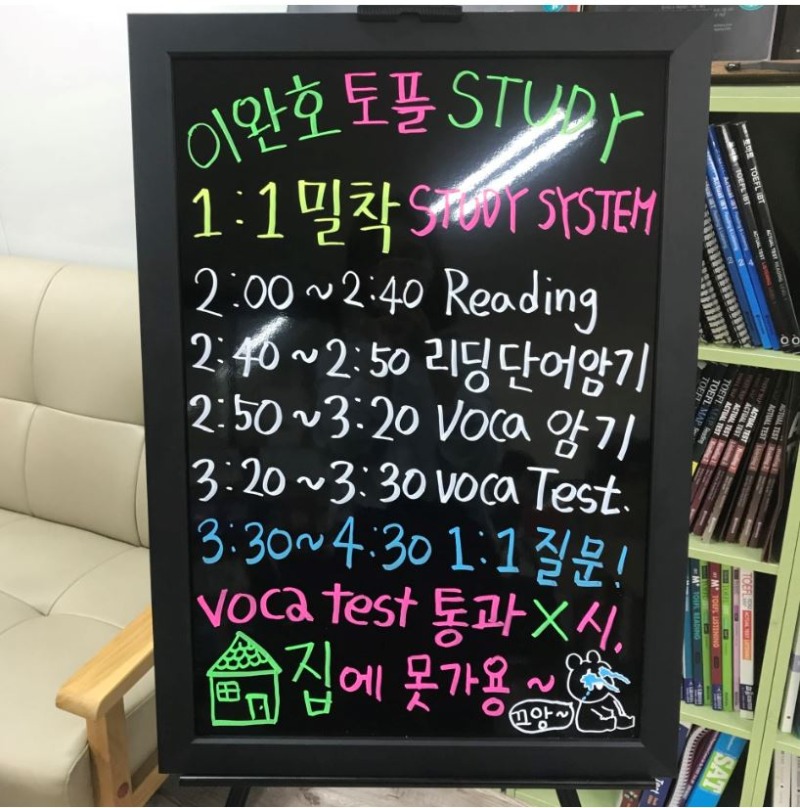 이완호 토플 STUDY
1:1 밀착 STUDY SYSTEM
2:00 ~ 2:40 Reading
2:40 ~ 2:50 리딩단어암기
2:50 ~ 3:20 Voca 암기
3:20 ~ 3:30 voca Test.
3:30 ~ 4:30 1:1 질문!
voca test 통과 X 시,
집에 못가용 ~
끄앙~
TOEFL iBT
TOEFL iBT
ACTUAL TEST
ACTUAL TEST
TOEFL MAP
ACTUAL TEST
TOEFL READING
TOEFL LISTENING
SAT